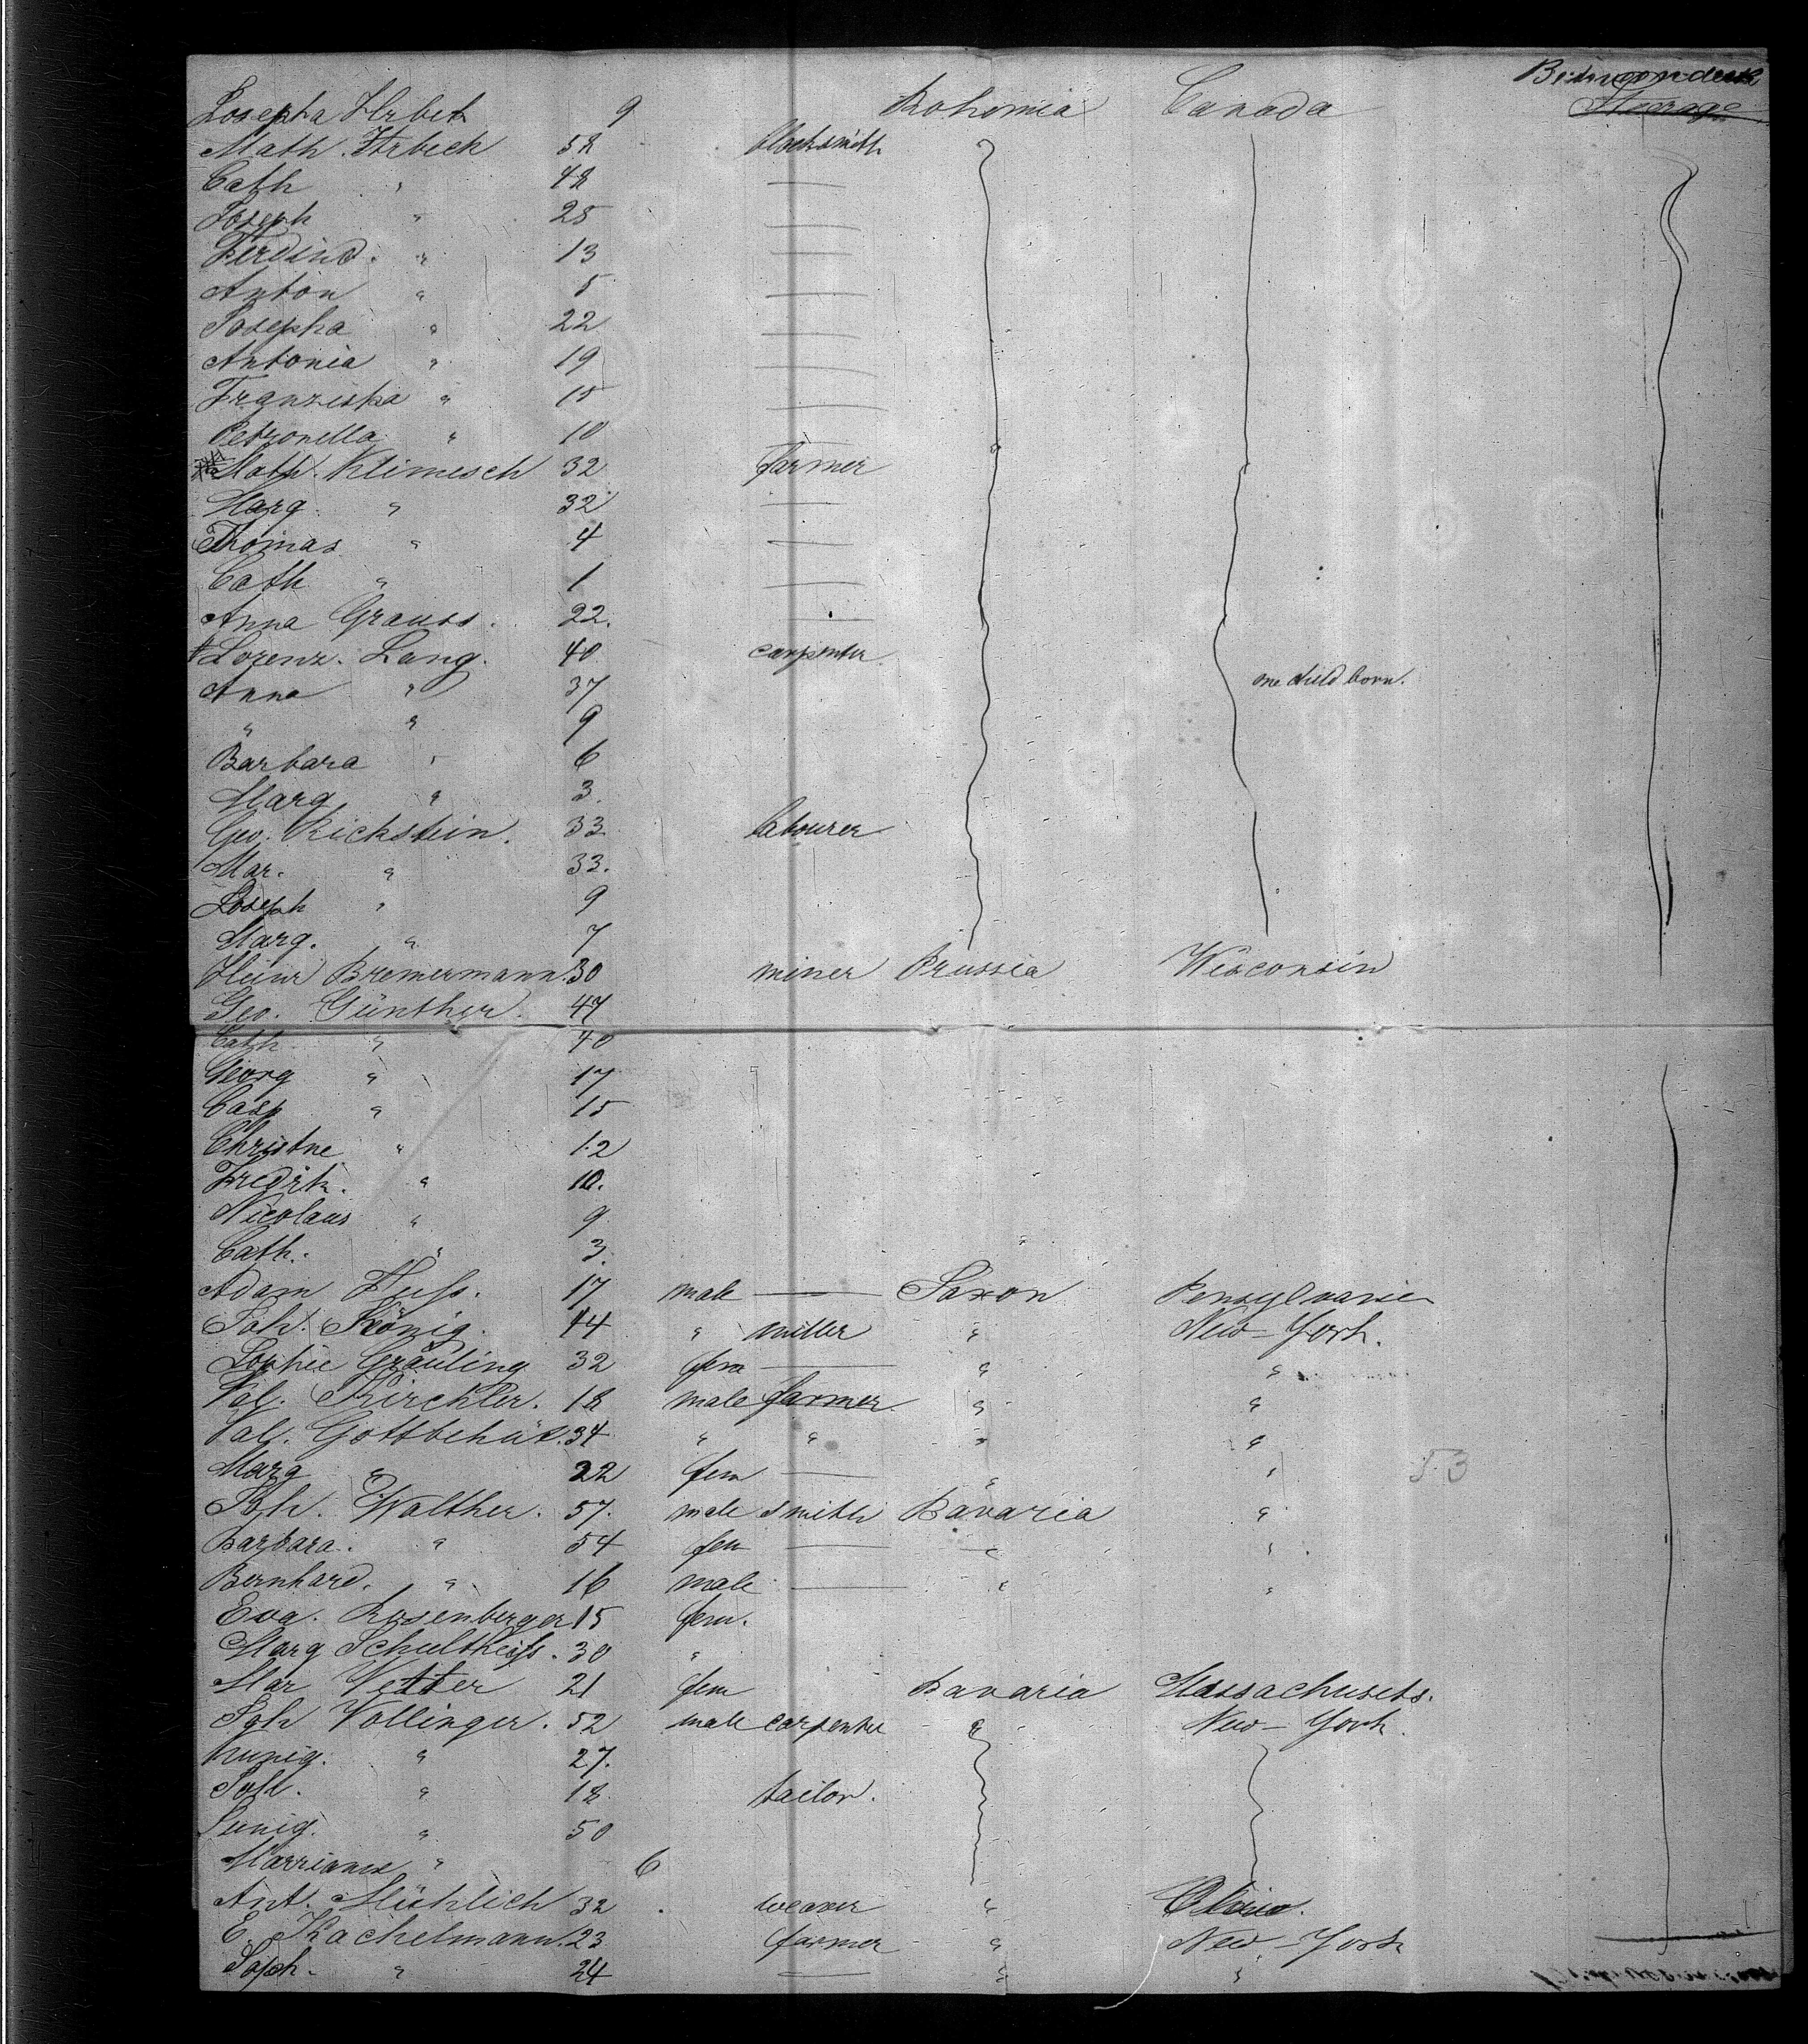 Between deck
Josepha Hrbek 9 Bohemia Canada Steerage
Math. Hrbeck 58 blacksmith
Cath " 48 —
Joseph " 25 —
Ferdind. " 13 —
Anton " 5 —
Josepha " 22 —
Antonia " 19 —
Franziska " 15 —
Petronella " 10 —
Math. Klimesch 32 farmer
Marg. " 32 —
Thomas " 4 —
Cath " 1 —
Anna Grauss. 22. —
Lorenz. Lang. 40 carpenter
Anna " 37 one child born.
" " 9
Barbara " 6
Marg " 3.
Geo. Rickstein. 33 labourer
Mar. " 33.
Joseph " 9
Marg. " 7
Heinr Bremermann. 30 miner Prussia Wisconsin
Geo. Günther. 47
Cath " 40
Georg " 17
Casp " 15
Christne " 12
Fredrk. " 10.
Nicolaus " 9
Cath. " 3.
Adam Huß. 17 male — Saxon Pensylvanie
Joh. König. 44 " miller " New-York.
Sophie Gräuling 32 fem — " "
Val. Kirchler. 18 male farmer " "
Val. Gottbehüt. 34 " " " "
Marg " 22 fem — " " 53
Joh. Walther. 57. male smith Bavaria "
Barbara. " 54 fem — " "
Bernhard. " 16 male — " "
Eva. Rosenberger 15 fem.
Marg Schultheiß. 30 "
Mar Vetter 21 fem Bavaria Massachusets.
Joh Vollinger. 52 male carpenter " New-York.
Kunig. " 27.
Joh. " 18 tailor.
Kunig. " 50
Marriane " 6
Ant. Mühlich 32 weaver " Ohio.
E. Kachelmann. 23 farmer " New-York
Soph. " 24 — " "